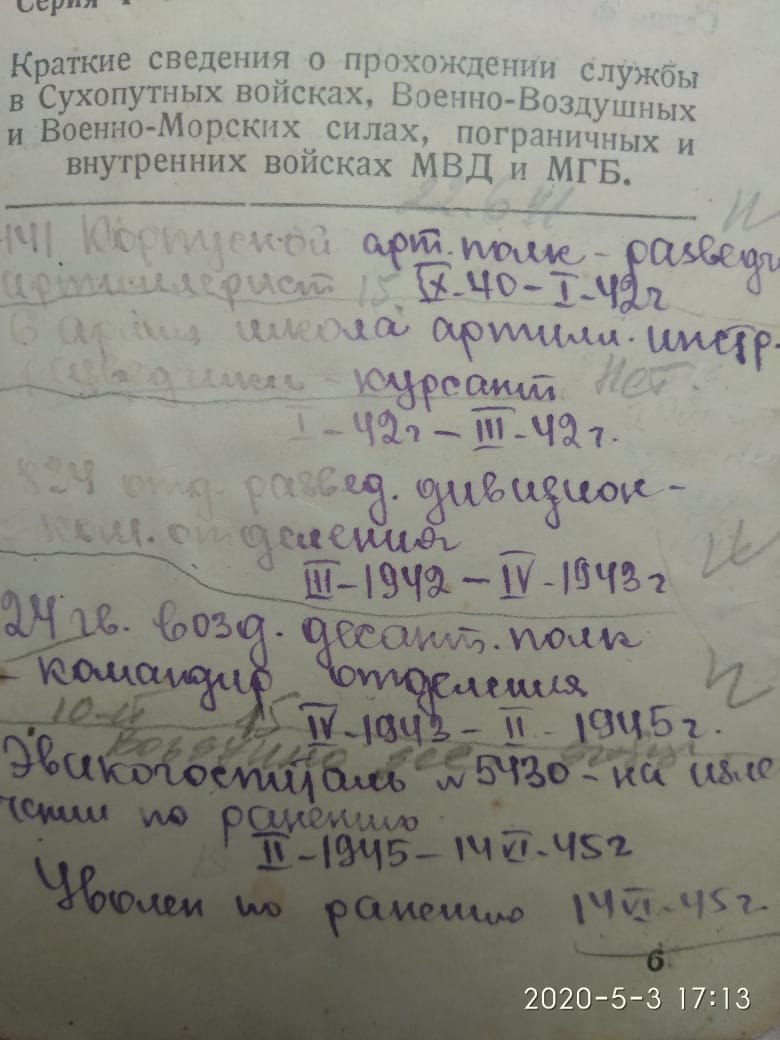 Серия
Краткие сведения о прохождении службы
в Сухопутных войсках, Военно-Воздушных
и Военно-Морских силах, пограничных и
внутренних войсках МВД и МГБ.
22.6 41
141 Корпусной арт. полк - разведч
артиллерист 15. IX-40-I-42г
школа артилл. инстр.
разведчики - курсант Нет.
I-42г-III-42г.
отд. развед. дивизион-
ком. отделения
III-1942-IV-1943г
24 гв. возд. десант. полк
- командир отделения
IV-1943-II-1945г.
Эвакогоспиталь №5430-на изле
чении по ранению
II-1945-14 VI-45г
Уволен по ранению 14 VI-45г.
6
2020-5-3 17:13